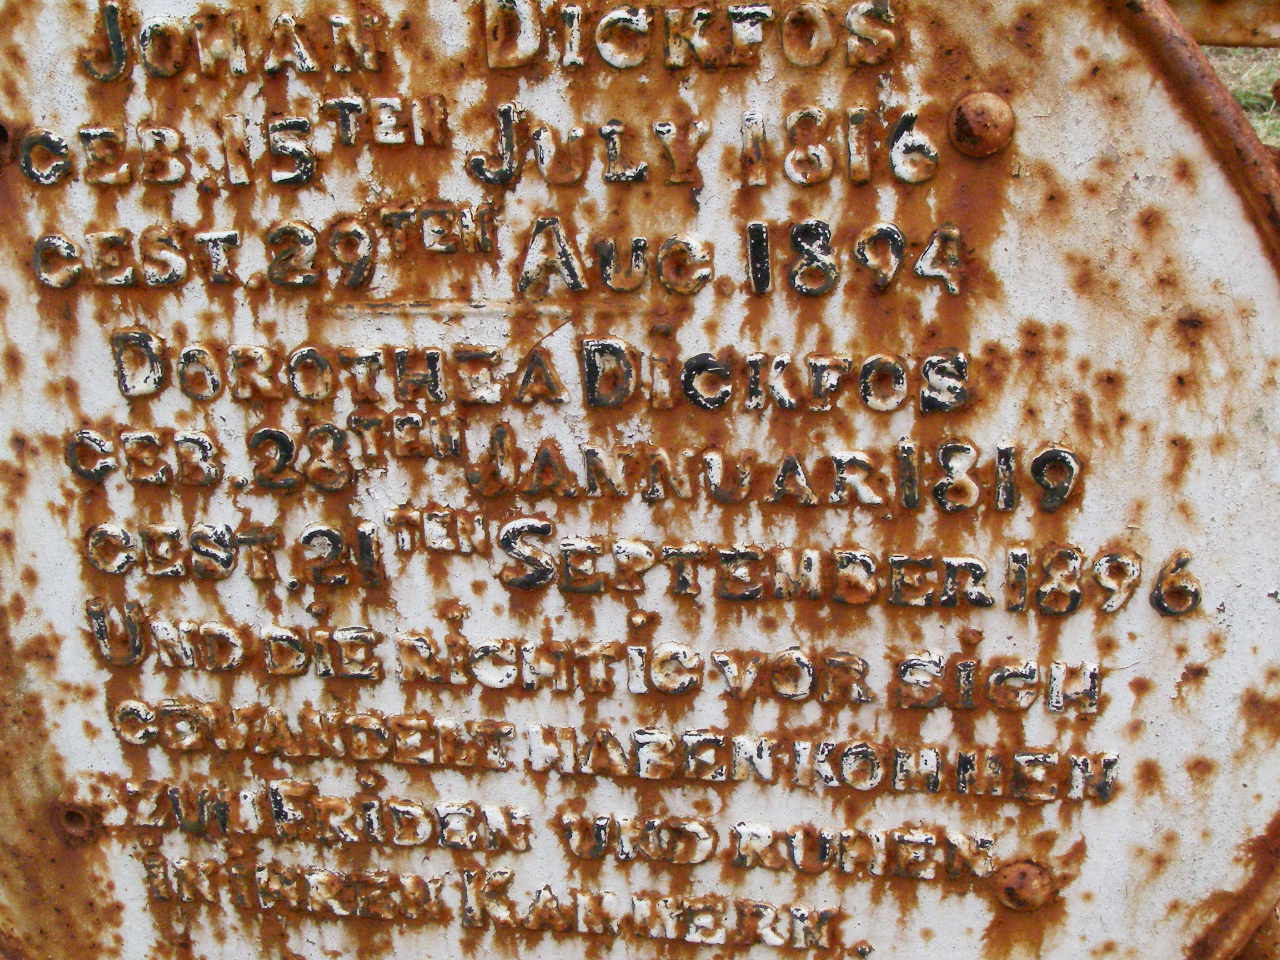 JOHAN DICKFOS
GEB. 15TEN JULY 1816
GEST. 29TEN AUG. 1894
DOROTHEA DICKFOS
GEB. 28TEN JANNUARI 1819
GEST. 21TEN SEPTEMBER 1896
UND DIE RICHTIG VOR SICH
GEWANDELT HABEN KOMMEN
ZUM FRIDEN UND RUHEN
IN IHREN KAMMERN.